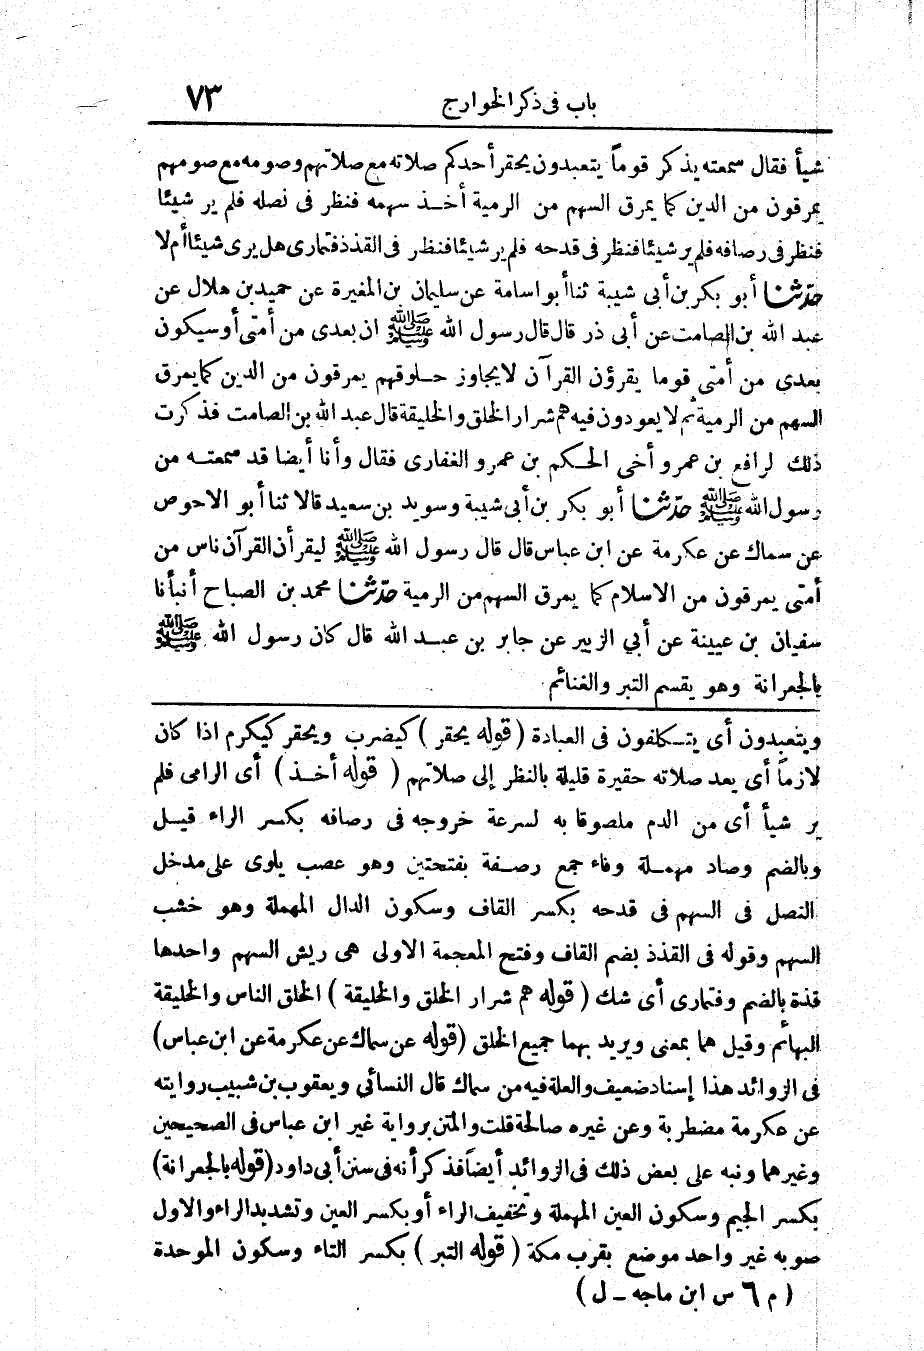 باب فى ذكر الخوارج ٧٣
شيأ فقال سمعته يذكر قوماً يتعبدون يحقر أحدكم صلاته مع صلاتهم وصومه مع صومهم
يمرقون من الدين كما يمرق السهم من الرمية أخذ سهمه فنظر فى نصله فلم ير شيئا
فنظر فى رصافه فلم ير شيئا فنظر فى قدحه فلم ير شيئا فنظر فى القذذ فتمارى هل يرى شيئا أم لا
حدّثنا أبو بكر بن أبى شيبة ثنا أبو اسامة عن سليمان بن المغيرة عن حميد بن هلال عن
عبد الله بن الصامت عن أبى ذر قال قال رسول الله ﷺ ان بعدى من أمتى أو سيكون
بعدى من أمتى قوما يقرؤن القرآن لا يجاوز حلوقهم يمرقون من الدين كما يمرق
السهم من الرمية ثم لا يعودون فيه هم شرار الخلق والخليقة قال عبد الله بن الصامت فذكرت
ذلك لرافع بن عمرو أخى الحكم بن عمرو الغفارى فقال وأنا أيضا قد سمعته من
رسول الله ﷺ حدّثنا أبو بكر بن أبى شيبة وسويد بن سعيد قالا ثنا أبو الاحوص
عن سماك عن عكرمة عن ابن عباس قال قال رسول الله ﷺ ليقرأن القرآن ناس من
أمتى يمرقون من الاسلام كما يمرق السهم من الرمية حدّثنا محمد بن الصباح أنبأنا
سفيان بن عيينة عن أبي الزبير عن جابر بن عبد الله قال كان رسول الله ﷺ
بالجعرانة وهو يقسم التبر والغنائم
ويتعبدون أى يتكلفون فى العبادة (قوله يحقر) كيضرب ويحقر كيكرم اذا كان
لازماً أى يعد صلاته حقيرة قليلة بالنظر إلى صلاتهم (قوله أخذ) أى الرامى فلم
ير شيأ أى من الدم ملصوقا به لسرعة خروجه فى رصافه بكسر الراء قيل
وبالضم وصاد مهملة وفاء جمع رصفة بفتحتين وهو عصب يلوى على مدخل
النصل فى السهم فى قدحه بكسر القاف وسكون الدال المهملة وهو خشب
السهم وقوله فى القذذ بضم القاف وفتح المعجمة الاولى هى ريش السهم واحدها
قذة بالضم وفتمارى أى شك (قوله هم شرار الخلق والخليقة) الخلق الناس والخليقة
البهائم وقيل هما بمعنى ويريد بهما جميع الخلق (قوله عن سماك عن عكرمة عن ابن عباس)
فى الزوائد هذا إسناد ضعيف والعلة فيه من سماك قال النسائي ويعقوب بن شبيب روايته
عن عكرمة مضطربة وعن غيره صالحة قلت والمتن برواية غير ابن عباس فى الصحيحين
وغيرهما ونبه على بعض ذلك فى الزوائد أيضاً فذكر أنه فى سنن أبى داود (قوله بالجعرانة)
بكسر الجيم وسكون العين المهملة وتخفيف الراء أو بكسر العين وتشديد الراء والاول
صوبه غير واحد موضع بقرب مكة (قوله التبر) بكسر التاء وسكون الموحدة
(م ٦ س ابن ماجه ـ ل)